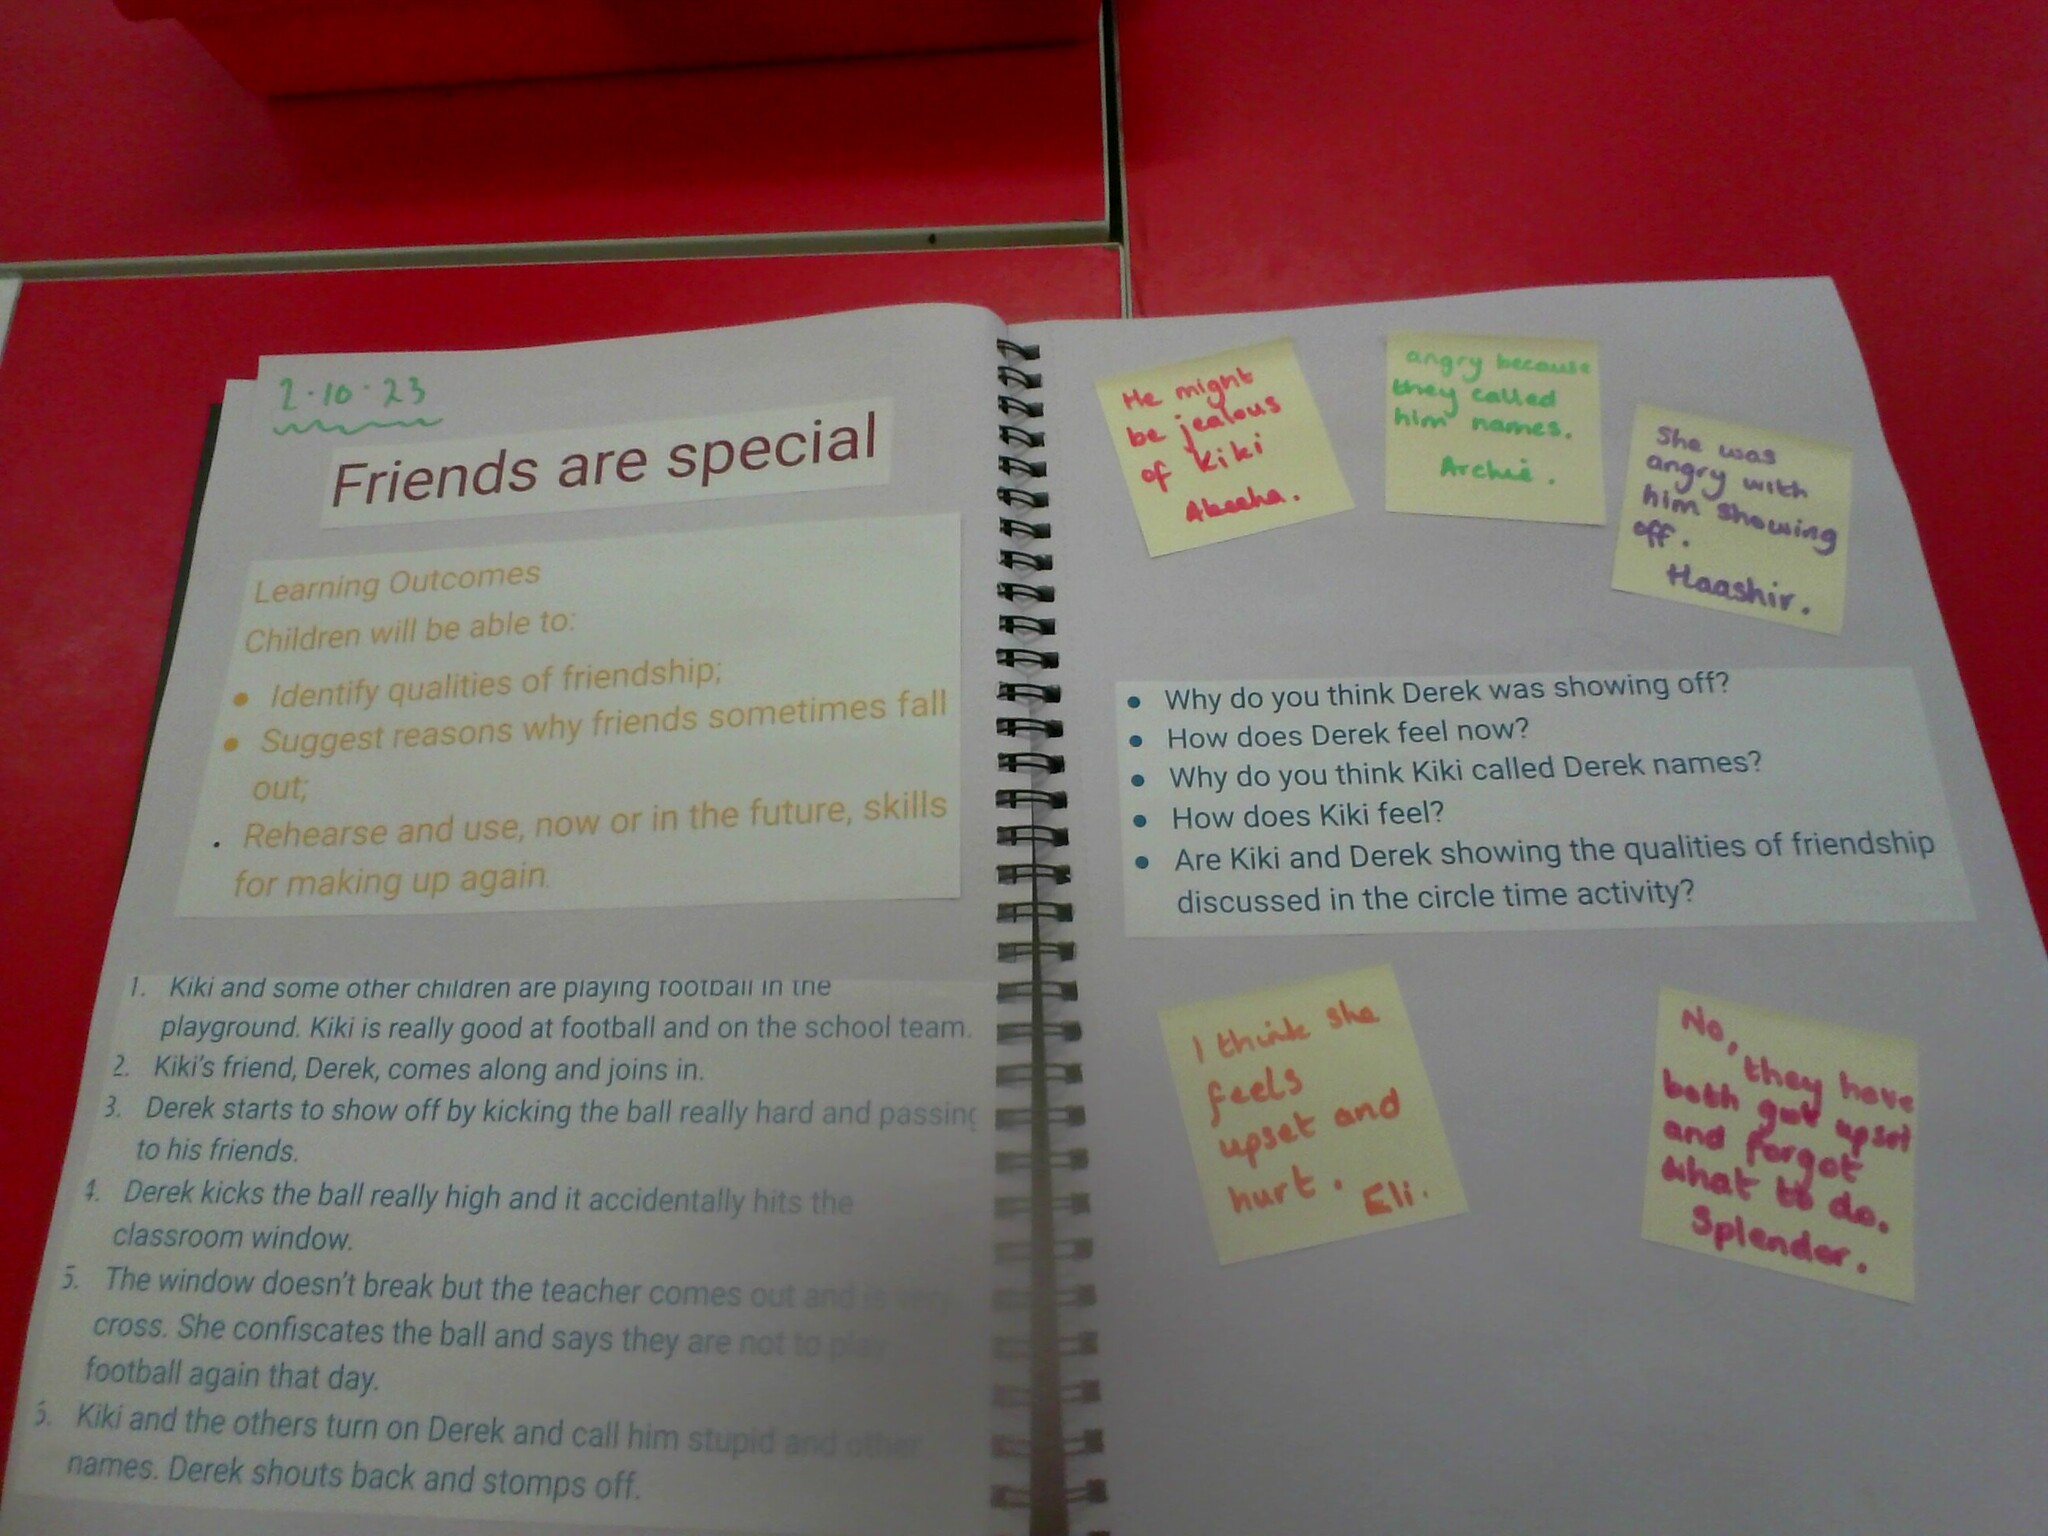 2.10.23
Friends are special
Learning Outcomes
Children will be able to:
• Identify qualities of friendship;
• Suggest reasons why friends sometimes fall
out;
. Rehearse and use, now or in the future, skills
for making up again.
1. Kiki and some other children are playing football in the
playground. Kiki is really good at football and on the school team.
2. Kiki's friend, Derek, comes along and joins in.
3. Derek starts to show off by kicking the ball really hard and passing
to his friends.
4. Derek kicks the ball really high and it accidentally hits the
classroom window.
5. The window doesn't break but the teacher comes out and is very
cross. She confiscates the ball and says they are not to play
football again that day.
6. Kiki and the others turn on Derek and call him stupid and other
names. Derek shouts back and stomps off.
He might
be jealous
of Kiki
Akeeha.
angry because
they called
him names.
Archie.
She was
angry with
him showing
off.
Haashir.
• Why do you think Derek was showing off?
• How does Derek feel now?
• Why do you think Kiki called Derek names?
• How does Kiki feel?
• Are Kiki and Derek showing the qualities of friendship
discussed in the circle time activity?
I think she
feels
upset and
hurt.
Eli.
No, they have
both got upset
and forgot
what to do.
Splendor.